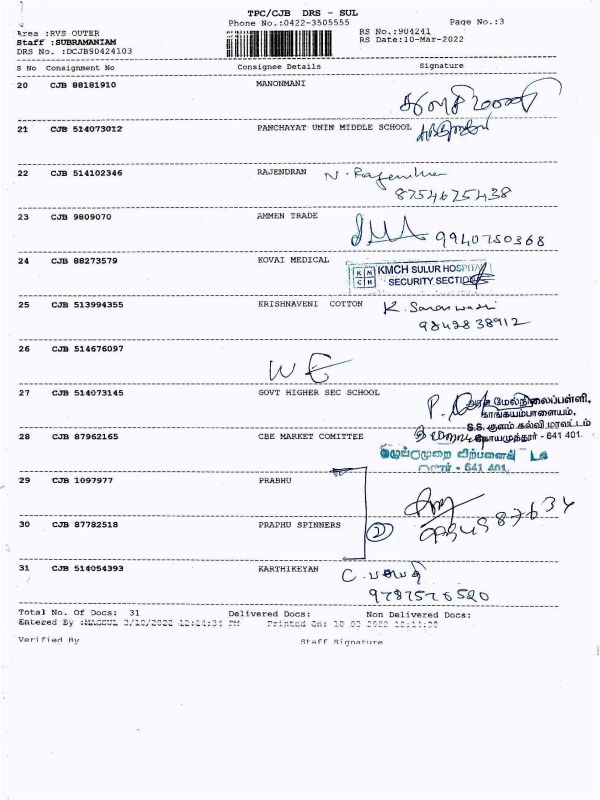 TPC/CJB DRS - SUL
Phone No.:0422-3505555 Page No.:3
Area :RVS OUTER RS No.:904241
Staff :SUBRAMANIAM RS Date:10-Mar-2022
DRS No. :DCJB90424103
S No Consignment No Consignee Details Signature
20 CJB 88181910 MANONMANI
21 CJB 514073012 PANCHAYAT UNIN MIDDLE SCHOOL
22 CJB 514102346 RAJENDRAN N. Rajendran
8754675438
23 CJB 9809070 AMMEN TRADE
9940750368
24 CJB 88273579 KOVAI MEDICAL KMCH SULUR HOSPITAL
SECURITY SECTION
25 CJB 513994355 KRISHNAVENI COTTON K. Saraswathi
9842838912
26 CJB 514676097
27 CJB 514073145 GOVT HIGHER SEC SCHOOL
மேல்நிலைப்பள்ளி,
காங்கயம்பாளையம்,
S.S. குளம் கல்வி மாவட்டம்
28 CJB 87962165 CBE MARKET COMITTEE கோயமுத்தூர் - 641 401.
விற்பனைக்
- 641 401.
29 CJB 1097977 PRABHU
30 CJB 87782518 PRAPHU SPINNERS 2
31 CJB 514054393 KARTHIKEYAN
9787576520
Total No. Of Docs: 31 Delivered Docs: Non Delivered Docs:
Entered By :MAGSUL 3/10/2022 12:14:34 PM Printed On:
Verified By Staff Signature